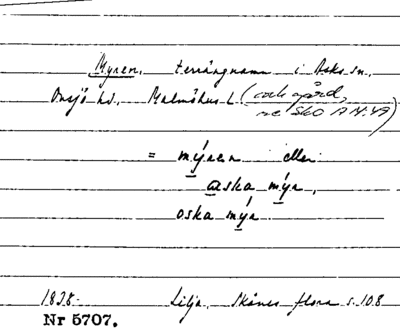 Myren, terrängnamn i Asks sn.,
Onsjö hd., Malmöhus l. (och gård,
se SkO A N:49)
= mýren eller
aska mýr,
oska mýr
1838. Lilja, Skånes flora s. 108
Nr 5707.